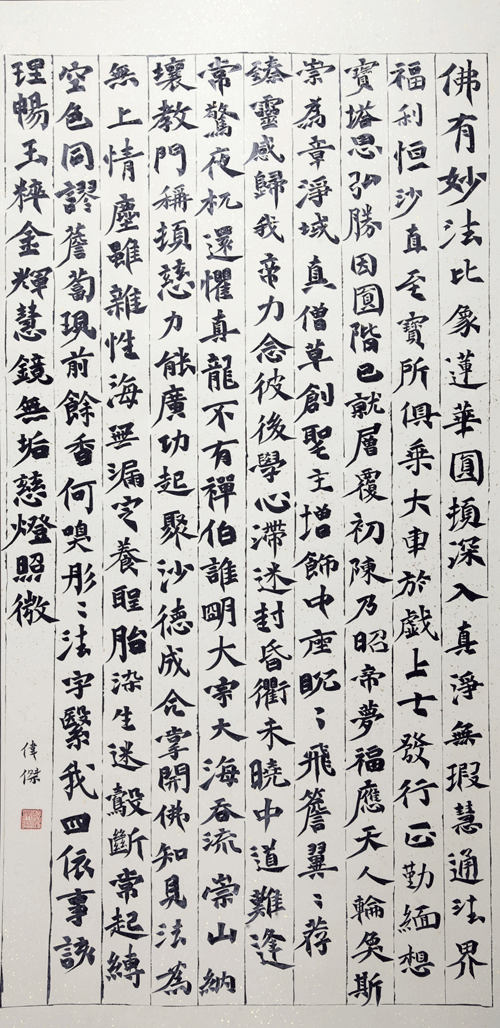 佛有妙法比象蓮華圓頓深入真淨無瑕慧通法界
福利恒沙直至寶所俱乘大車於戲上士發行正勤緬想
寶塔思弘勝因圓階已就層覆初陳乃昭帝夢福應天人輪奐斯
崇為章淨域真僧草創聖主增飾中座眈〻飛簷翼〻荐
臻靈感歸我帝力念彼後學心滯迷封昏衢未曉中道難逢
常驚夜杌還懼真龍不有禪伯誰明大宗大海吞流崇山納
壤教門稱頓慈力能廣功起聚沙德成合掌開佛知見法為
無上情塵雖雜性海無漏定養聖胎染生迷鷇斷常起縛
空色同謬薝蔔現前餘香何嗅彤〻法宇繫我四依事該
理暢玉粹金輝慧鏡無垢慈燈照微
偉傑